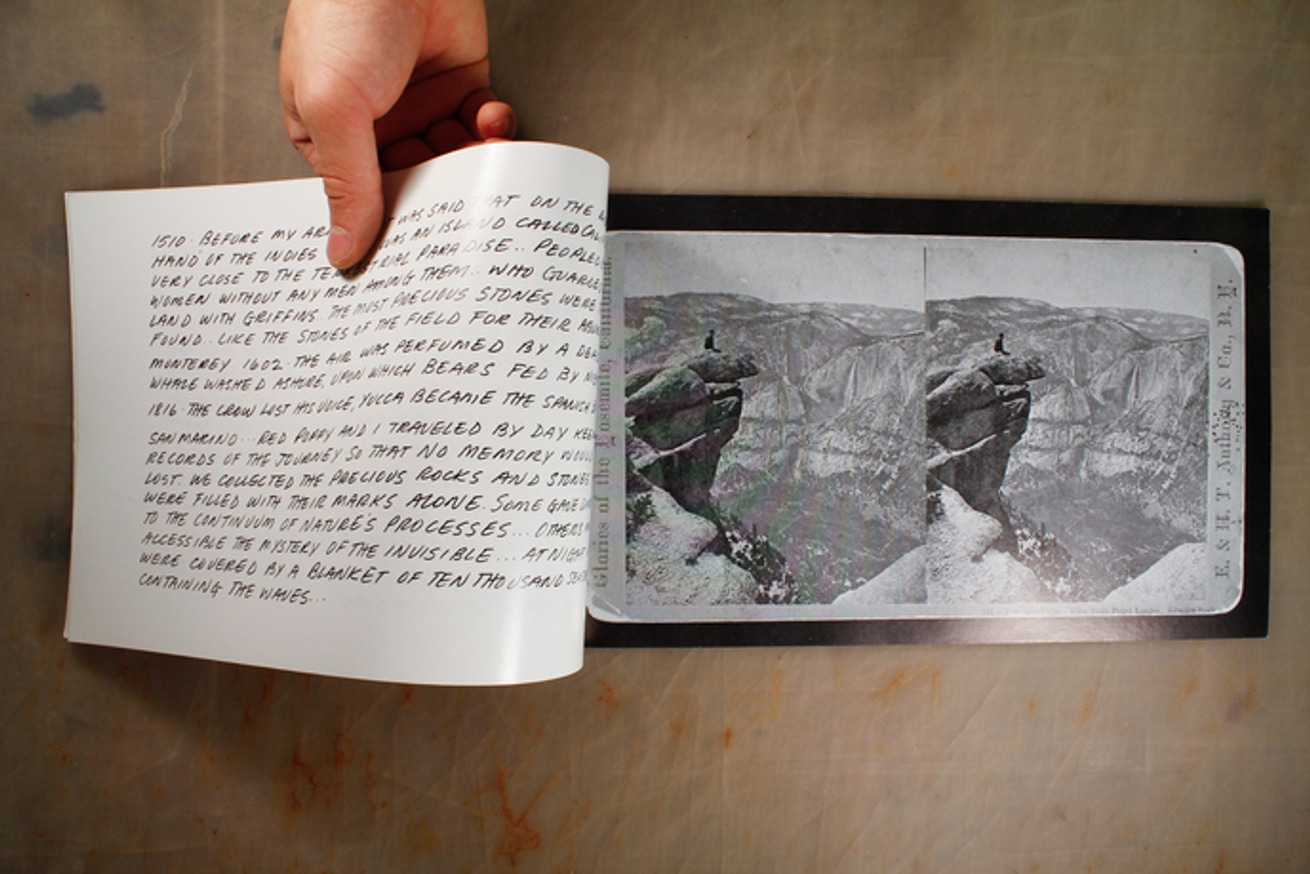 1510 · BEFORE MY WAS SAID THAT ON THE
HAND OF THE INDIES WAS AN ISLAND CALLED
VERY CLOSE TO THE PARADISE.. PEOPLED
WOMEN WITHOUT ANY MEN AMONG THEM.. WHO
LAND WITH GRIFFINS THE MOST PRECIOUS STONES WERE
FOUND.. LIKE THE STONES OF THE FIELD FOR THEIR
MONTEREY 1602 · THE AIR WAS PERFUMED BY A
WHALE WASHED ASHORE, UPON WHICH BEARS FED BY
1816 · THE CROW LOST HIS VOICE, YUCCA BECAME THE SPANISH
SAN MARINO... RED POPPY AND I TRAVELED BY DAY
RECORDS OF THE JOURNEY SO THAT NO MEMORY
LOST. WE COLLECTED THE PRECIOUS ROCKS AND
WERE FILLED WITH THEIR MARKS ALONE. SOME GAVE
TO THE CONTINUUM OF NATURE'S PROCESSES... OTHERS
ACCESSIBLE THE MYSTERY OF THE INVISIBLE... AT
WERE COVERED BY A BLANKET OF TEN THOUSAND
CONTAINING THE WAVES...
Glories of the Yosemite, California.
E. & H. T. Anthony & Co., N. Y.